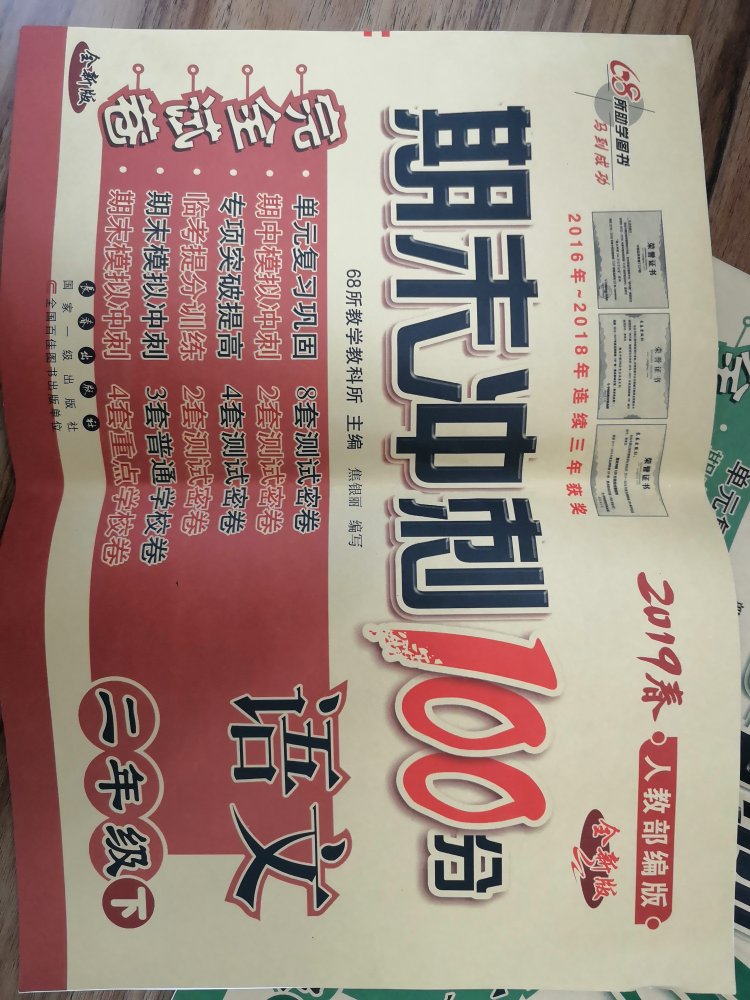 68所助学图书
马到成功
荣誉证书
荣誉证书
荣誉证书
2016年~2018年连续三年获奖
2019春
人教部编版
全新版
期末冲刺100分
68所教学教科所 主编 焦银丽 编写
完全试卷
全新版
· 单元复习巩固 8套测试密卷
· 期中模拟冲刺 2套测试密卷
· 专项突破提高 4套测试密卷
· 临考提分训练 2套测试密卷
· 期末模拟冲刺 3套普通学校卷
· 期末模拟冲刺 4套重点学校卷
语文
二年级下
长春出版社
国家一级出版社
全国百佳图书出版单位
全
单元